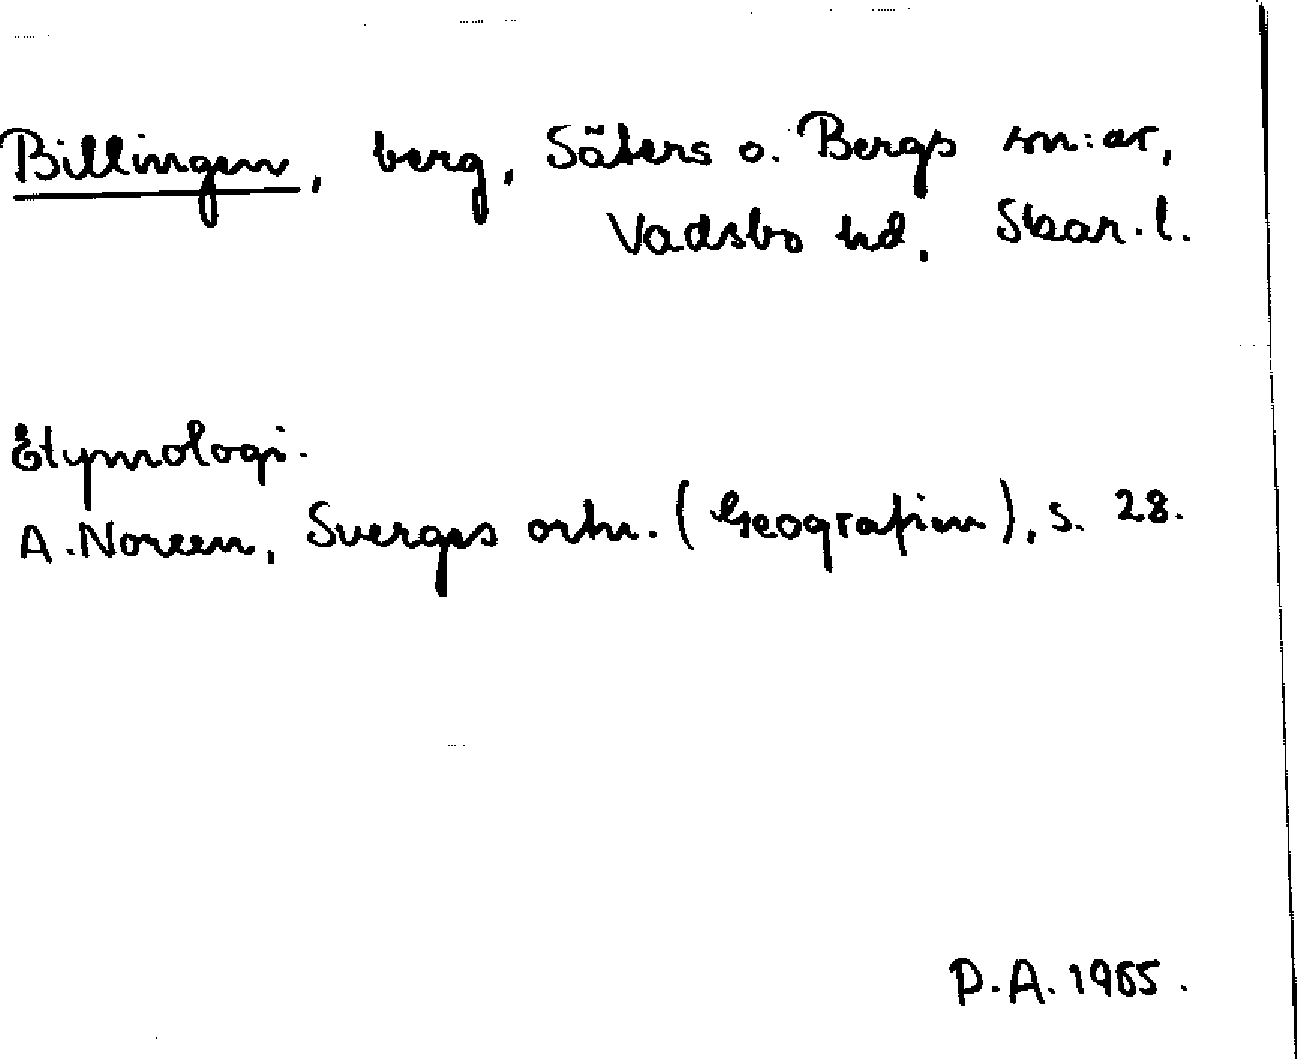 Billingen, berg, Säters o. Bergs sn:ar,
Vadsbo hd. Skar. l.
Etymologi.
A. Noreen, Sverges ortn. (Geografien), s. 28.
P.A. 1965.